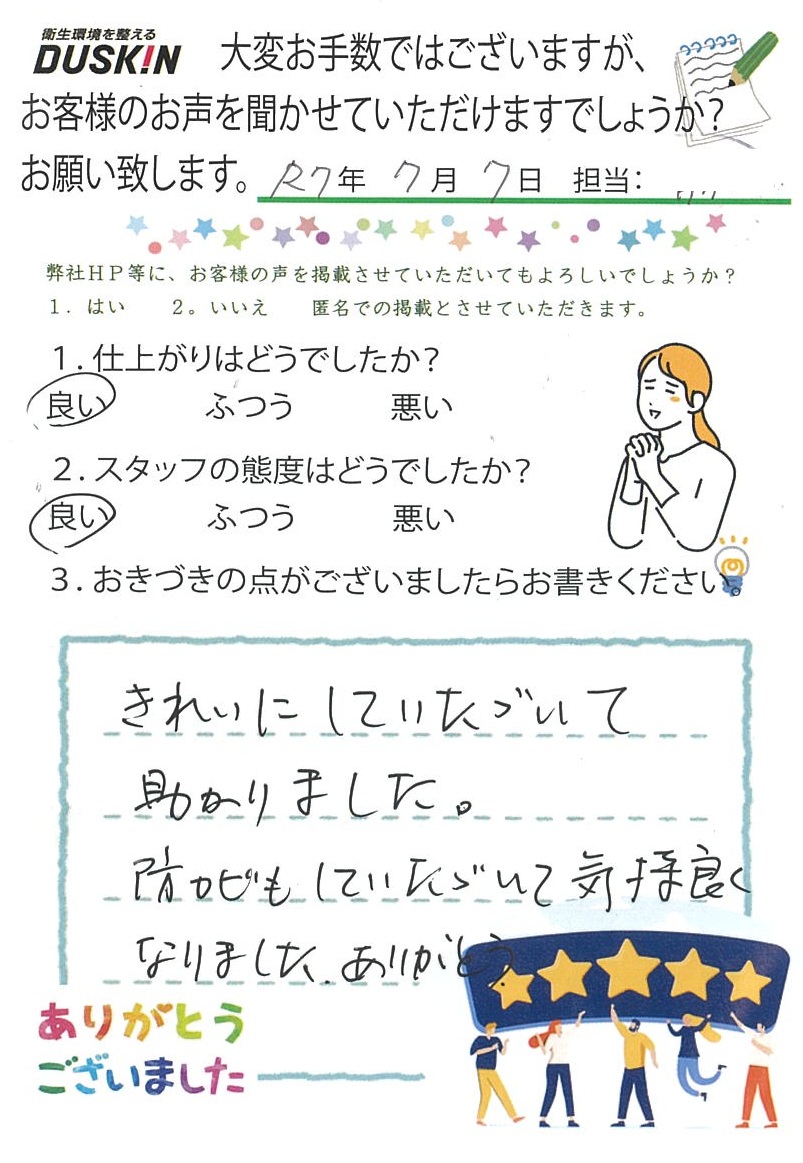 衛生環境を整える
DUSK!N
大変お手数ではございますが、
お客様のお声を聞かせていただけますでしょうか?
お願い致します。 R7年 7月 7日 担当:
弊社HP等に、お客様の声を掲載させていただいてもよろしいでしょうか?
1. はい 2。いいえ 匿名での掲載とさせていただきます。
1.仕上がりはどうでしたか?
良い ふつう 悪い
2.スタッフの態度はどうでしたか?
良い ふつう 悪い
3.おきづきの点がございましたらお書きください。
きれいにしていたづいて
助かりました。
防カビもしていたづいて気持良く
なりました.ありがとう
ありがとう
ございました